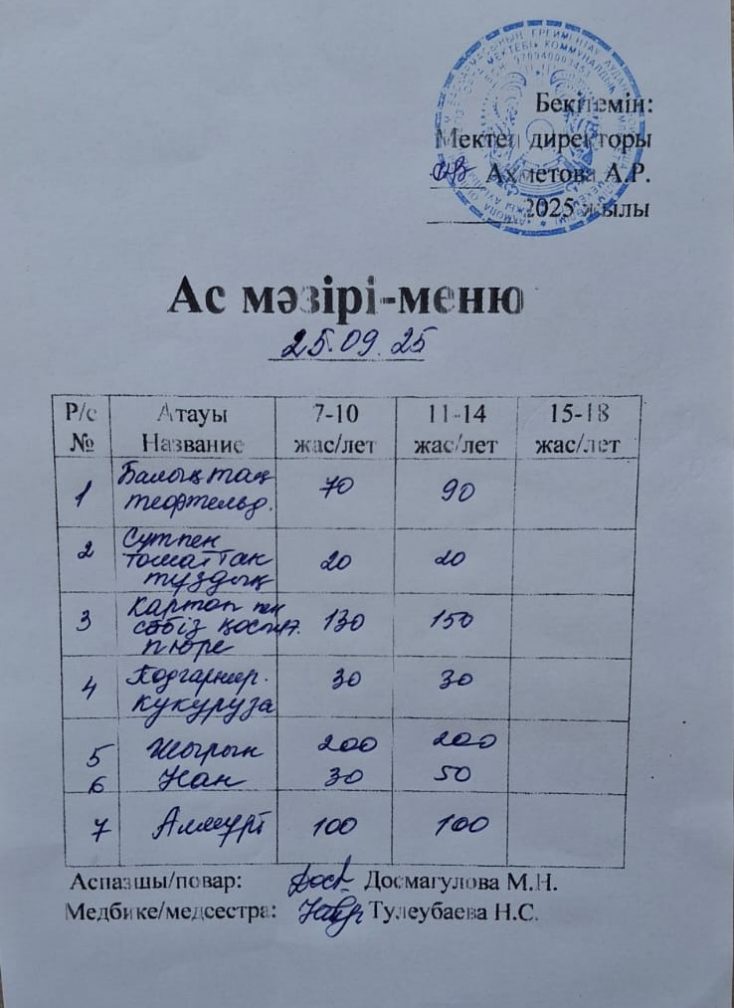 Бекітемін:
Мектеп директоры
Ахметова А.Р.
2025 жылы
Ас мәзірі-меню
25.09.25
Р/с № Атауы Название 7-10 жас/лет 11-14 жас/лет 15-18 жас/лет
1 Балықтан тефтельд. 70 90
2 Сүтпен томаттан тұздық 20 20
3 Картоп пен сәбіз қосып. пюре 130 150
4 Подгарнир. кукуруза 30 30
5 Шырын 200 200
6 Нан 30 50
7 Алмұрт 100 100
Аспазшы/повар: Досмагулова М.Н.
Медбике/медсестра: Тулеубаева Н.С.